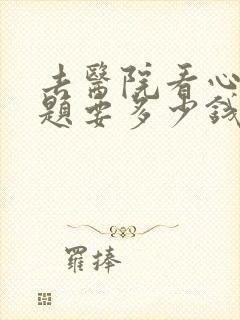 去醫院看心
題要多少錢
羅捧